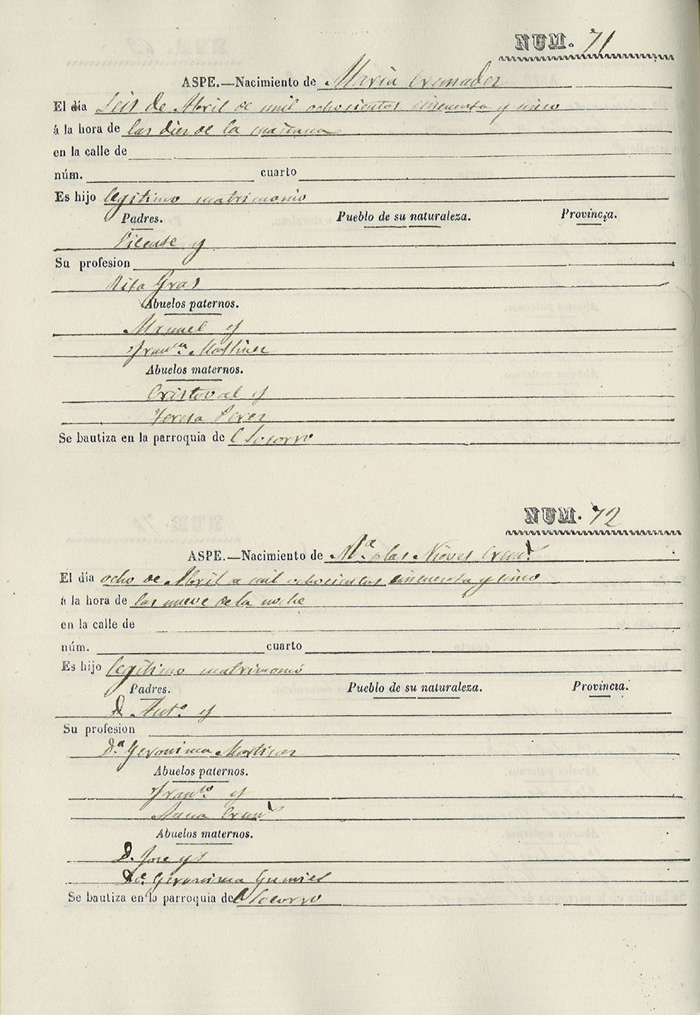 NUM. 71
ASPE.—Nacimiento de Maria Cremades
El dia Seis de Abril de mil ochocientos cincuenta y cinco
á la hora de las dies de la mañana
en la calle de
núm. cuarto
Es hijo legitimo matrimonio
Padres. Pueblo de su naturaleza. Provincia.
Vicente y
Su profesion
Rita Gras
Abuelos paternos.
Manuel y
Franca. Martinez
Abuelos maternos.
Cristoval y
Teresa Perez
Se bautiza en la parroquia de l Socorro
NUM. 72
ASPE.—Nacimiento de Ma. las Nieves Crems.
El dia ocho de Abril de mil ochocientos cincuenta y cinco
á la hora de las nueve de la noche
en la calle de
núm. cuarto
Es hijo legitimo matrimonio
Padres. Pueblo de su naturaleza. Provincia.
D. Anto. y
Su profesion
Da. Geronima Martinez
Abuelos paternos.
Franco. y
Anna
Abuelos maternos.
D. Jose y
Da. Geronima
Se bautiza en la parroquia del Socorro